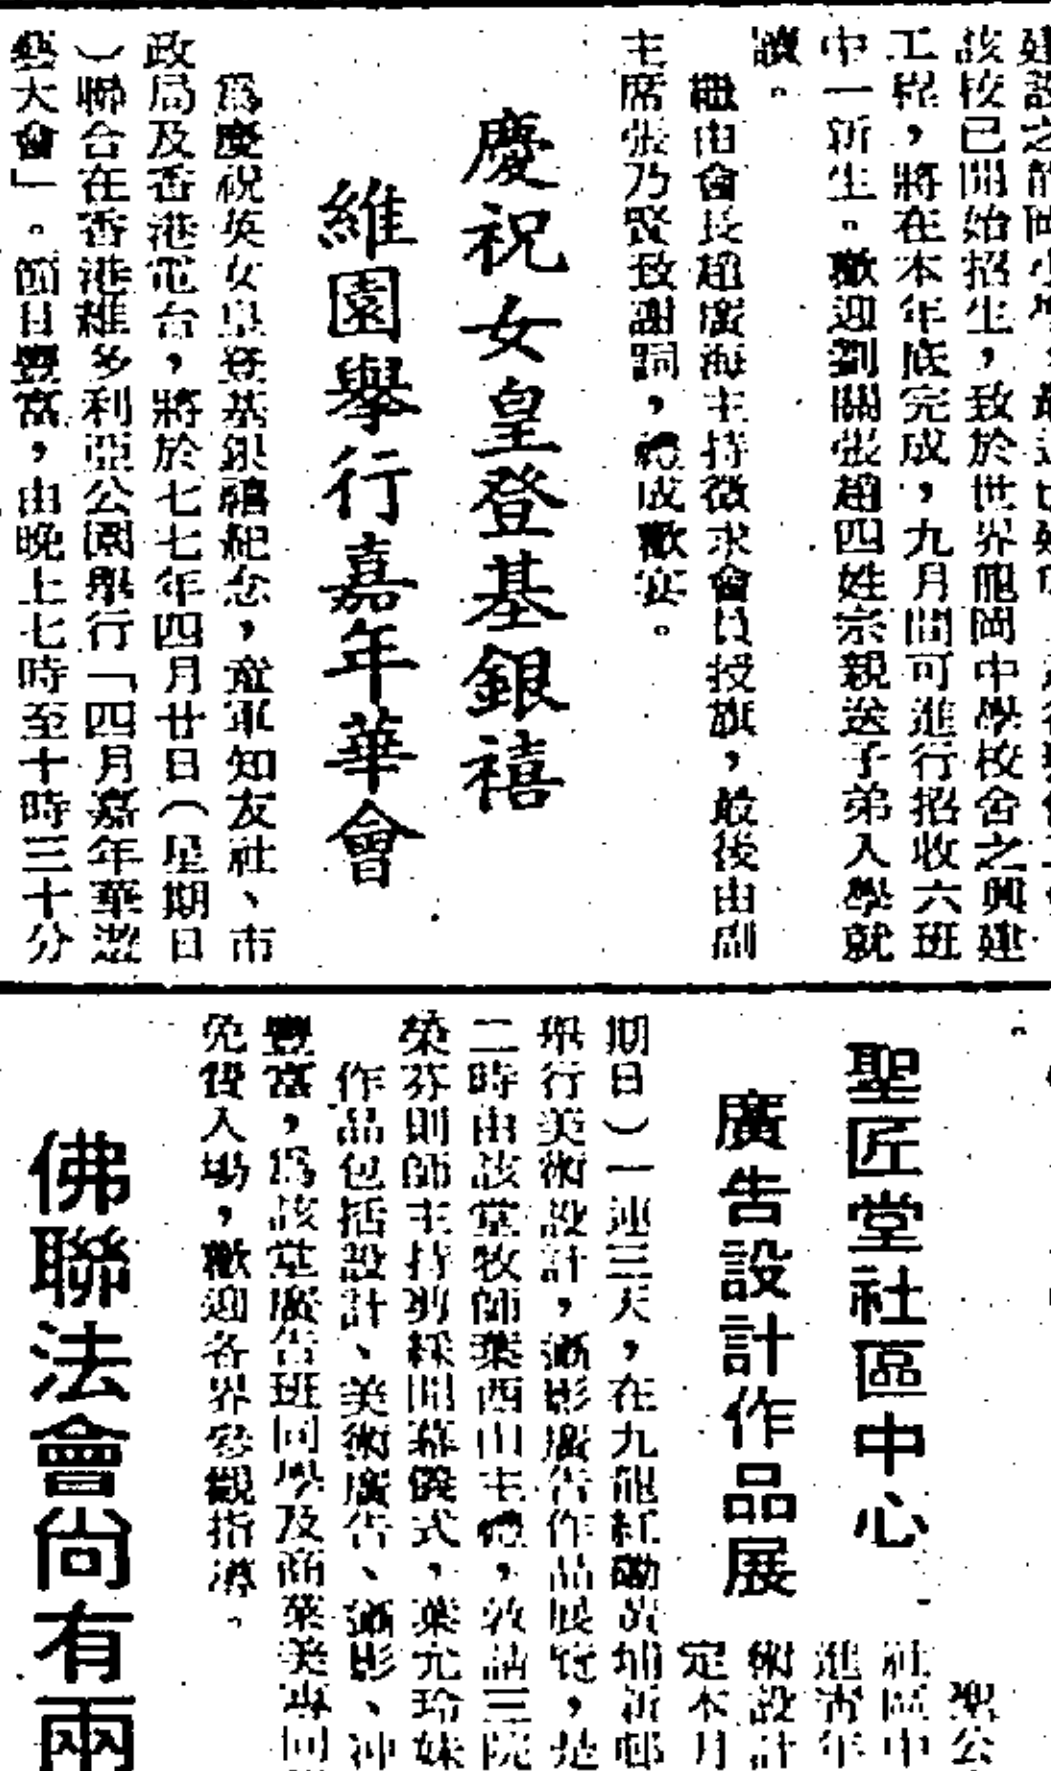 該校已開始招生，致於世界龍岡中學校舍之興建
工程，將在本年底完成，九月間可進行招收六班
中一新生。歡迎劉關張趙四姓宗親送子弟入學就
讀。
繼由會長趙廣海主持徵求會員授旗，最後由副
主席張乃賢致謝詞，禮成歡宴。
慶祝女皇登基銀禧
維園舉行嘉年華會
爲慶祝英女皇登基銀禧紀念，童軍知友社、市
政局及香港電台，將於七七年四月廿日（星期日
）聯合在香港維多利亞公園舉行「四月嘉年華遊
藝大會」。節目豐富，由晚上七時至十時三十分
聖公
社區中
進青年
術設計
定本月
聖匠堂社區中心
廣告設計作品展
期日）一連三天，在九龍紅磡黃埔新邨
舉行美術設計，攝影廣告作品展覽，是
二時由該堂牧師葉西山主禮，敦請三院
榮芬則師主持剪綵開幕儀式，葉尤玲妹
作品包括設計、美術廣告、攝影、冲
豐富，爲該堂廣告班同學及商業美專同
免費入場，歡迎各界參觀指導。
佛聯法會尚有兩